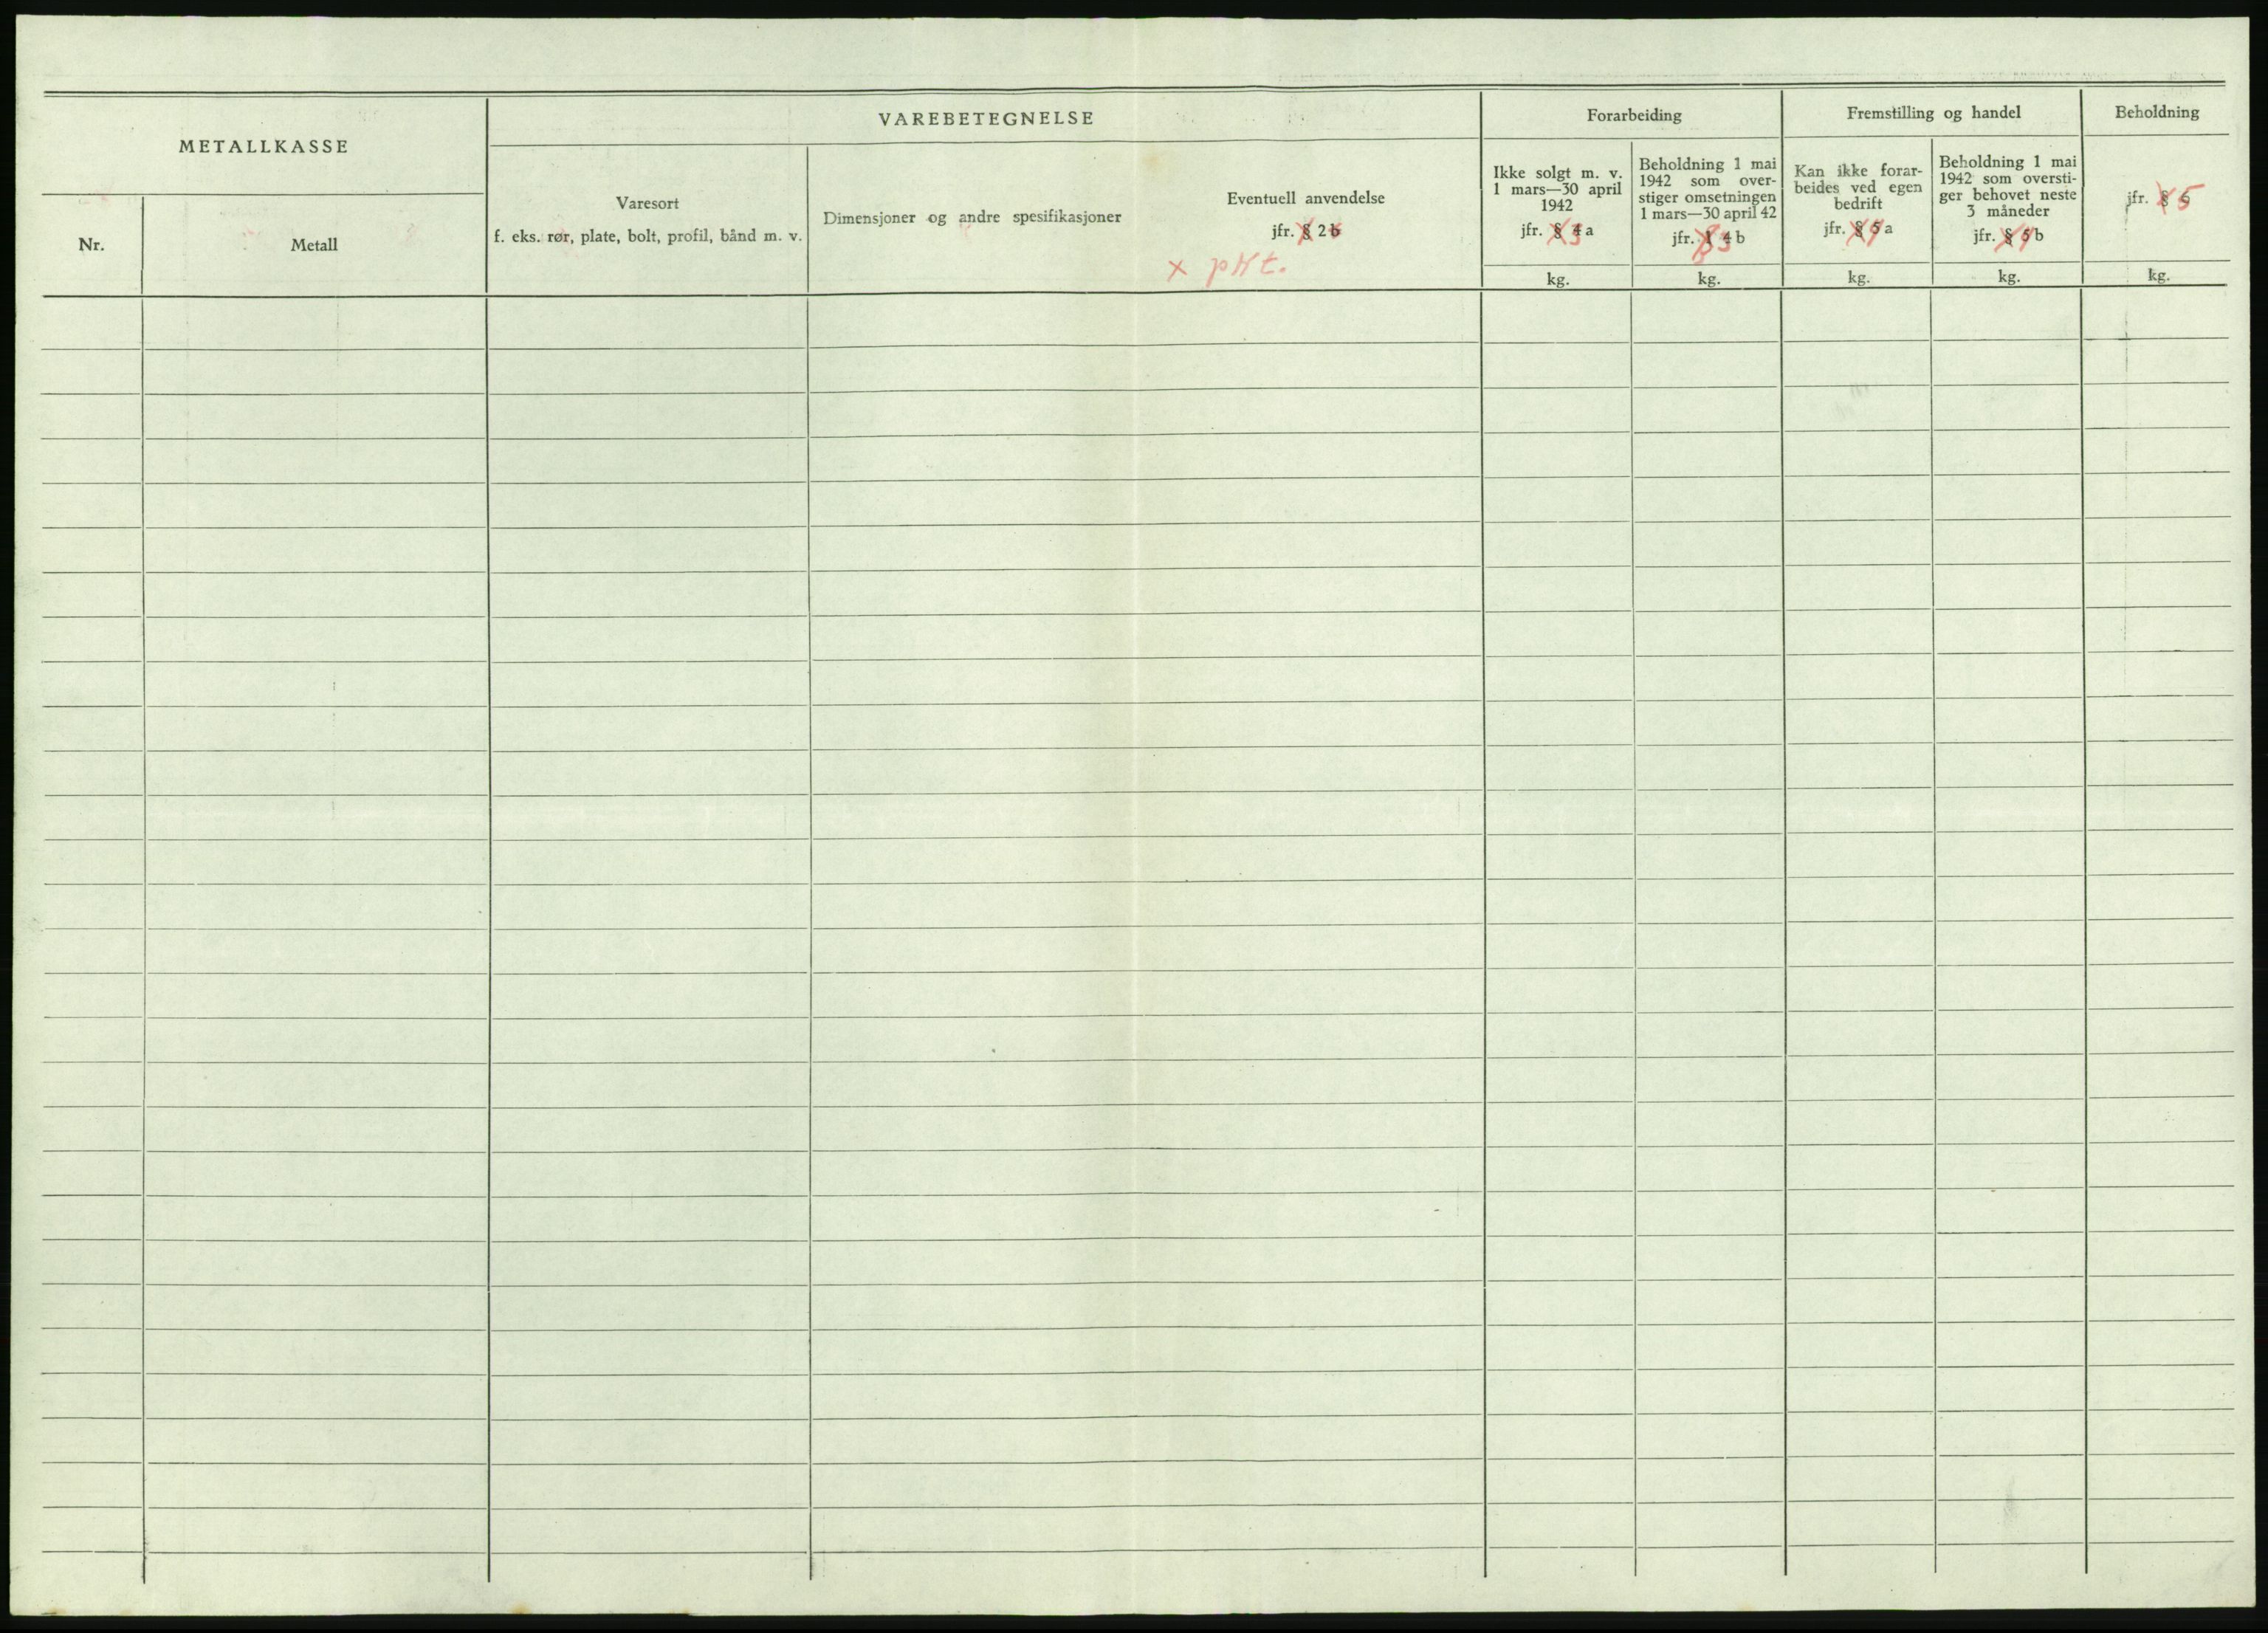 METALLKASSE
Nr.
Metall
VAREBETEGNELSE
Varesort
f. eks. rør, plate, bolt, profil, bånd m. v.
Dimensjoner og andre spesifikasjoner
Eventuell anvendelse
jfr. § 2 b
x pkt.
Forarbeiding
Ikke solgt m. v.
1 mars—30 april
1942
jfr. § 4 a
3
kg.
Beholdning 1 mai
1942 som over-
stiger omsetningen
1 mars—30 april 42
jfr. § 4 b
3
kg.
Fremstilling og handel
Kan ikke forar-
beides ved egen
bedrift
jfr. § 5 a
4
kg.
Beholdning 1 mai
1942 som oversti-
ger behovet neste
3 måneder
jfr. § 5 b
4
kg.
Beholdning
jfr. § 6
5
kg.